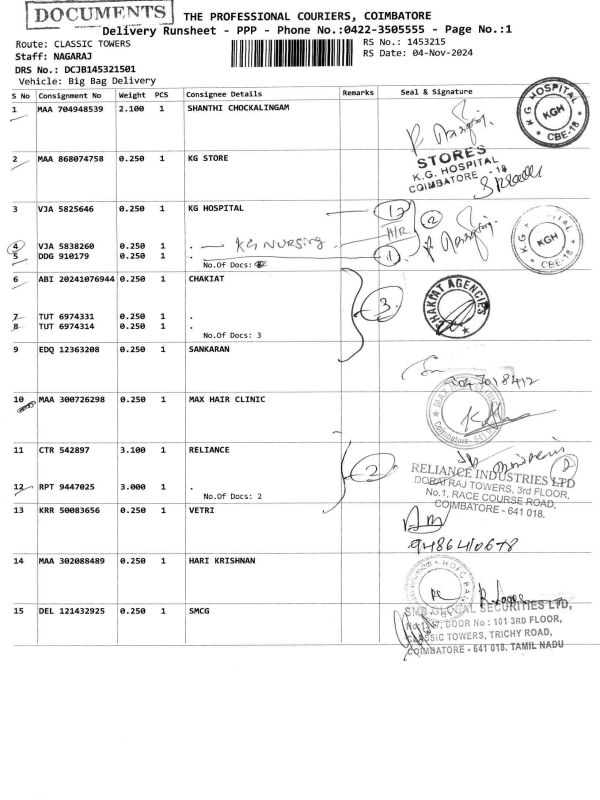 DOCUMENTS
THE PROFESSIONAL COURIERS, COIMBATORE
Delivery Runsheet - PPP - Phone No.:0422-3505555 - Page No.:1
Route: CLASSIC TOWERS
RS No.: 1453215
Staff: NAGARAJ
RS Date: 04-Nov-2024
DRS No.: DCJB145321501
Vehicle: Big Bag Delivery
S No Consignment No Weight PCS Consignee Details Remarks Seal & Signature
1 MAA 704948539 2.100 1 SHANTHI CHOCKALINGAM
K G HOSPITAL
KGH
CBE-18
2 MAA 868074758 0.250 1 KG STORE
STORES
K.G. HOSPITAL
COIMBATORE - 18
3 VJA 5825646 0.250 1 KG HOSPITAL
4 VJA 5838260 0.250 1 . KG NURSING
5 DDG 910179 0.250 1 .
No.Of Docs:
H/R
2
1
KGH
CBE-18
6 ABI 20241076944 0.250 1 CHAKIAT
7 TUT 6974331 0.250 1 .
8 TUT 6974314 0.250 1 .
No.Of Docs: 3
3
CHAKIAT AGENCIES
9 EDQ 12363208 0.250 1 SANKARAN
10 MAA 300726298 0.250 1 MAX HAIR CLINIC
11 CTR 542897 3.100 1 RELIANCE
12 RPT 9447025 3.000 1 .
No.Of Docs: 2
2
2
RELIANCE INDUSTRIES LTD
DORAI RAJ TOWERS, 3rd FLOOR,
No.1, RACE COURSE ROAD,
COIMBATORE - 641 018.
13 KRR 50083656 0.250 1 VETRI
9486410678
14 MAA 302088489 0.250 1 HARI KRISHNAN
15 DEL 121432925 0.250 1 SMCG
GLOBAL SECURITIES LTD,
DOOR No.: 101 3RD FLOOR,
CLASSIC TOWERS, TRICHY ROAD,
COIMBATORE - 641 018. TAMIL NADU